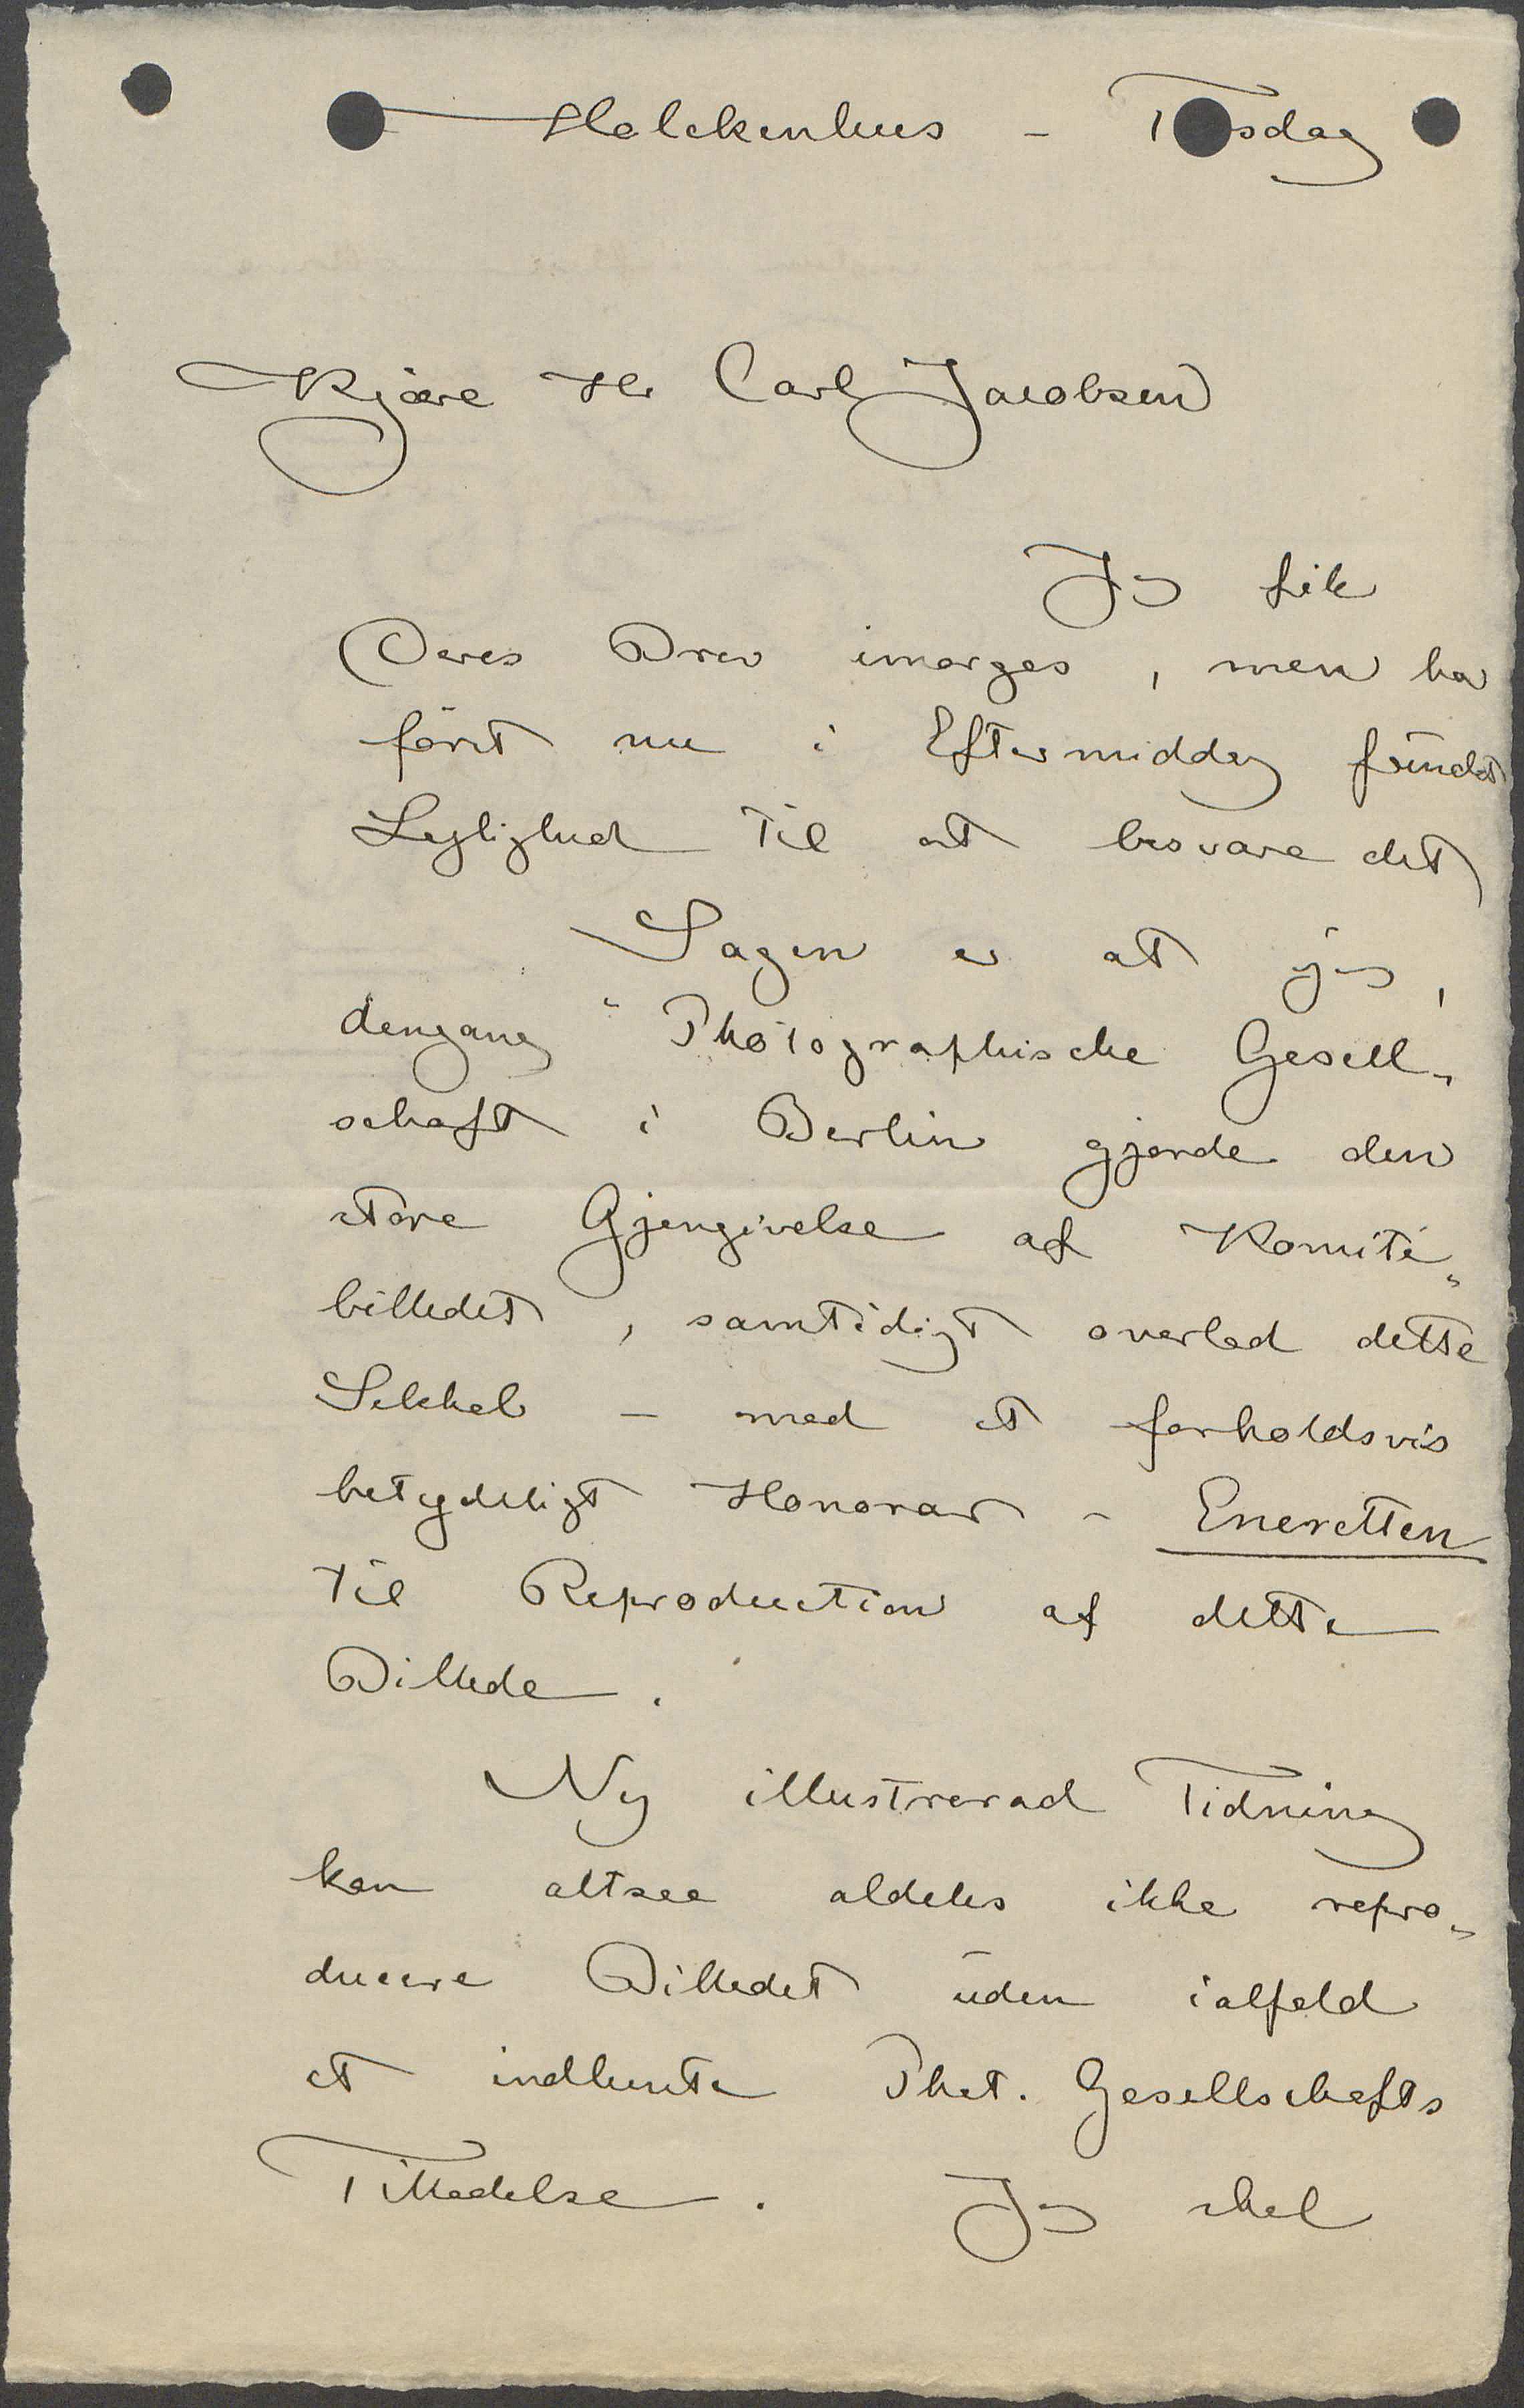 Holckenhus - T sdag
Kjære Hr Carl Jacobsen
Jeg fik
Deres Brev imorges, men har
först nu i Eftermiddag fundet
Leylighed til at besvare det
Sagen er at jeg,
dengang "Photographische Gesell-
schaft i Berlin gjorde den
store Gjengivelse af Komité-
billedet, samtidigt overlod dette
Selskab - mod et forholdsvis
betydeligt Honorar - Eneretten
til Reproduction af dette
Billede.
Ny illustrerad Tidning
kan altsaa aldeles ikke repro-
ducere Billedet uden ialfald
at indhente Phot. Gesellschafts
Tilladelse. Jeg skal